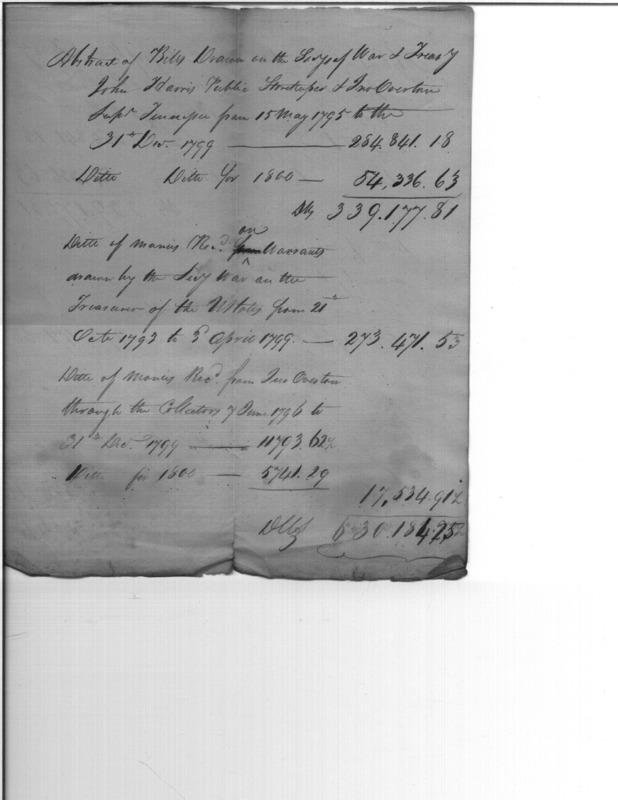 Abstract of Bills Drawn on the Secys of War & Treasy
John Harris Public Storekeeper & Jno Overton
Supr. Tennessee from 15 May 1795 to the
31st Dec. 1799 — 284.841.18
Ditto Ditto for 1800 — 54,336.63
Dlls 339.177.81
on
Ditto of monies Recd. from Warrants
drawn by the Secy War on the
Treasurer of the UStates from 21st
Octo 1793 to 3 April 1799. — 273.471.53
Ditto of monies Recd. from Jno Overton
through the Collectors 7 June 1796 to
31st Dec. 1799 — 11793.62½
Ditto for 1800 — 5741.29
17,534.91½
Dlls 630.184.25½